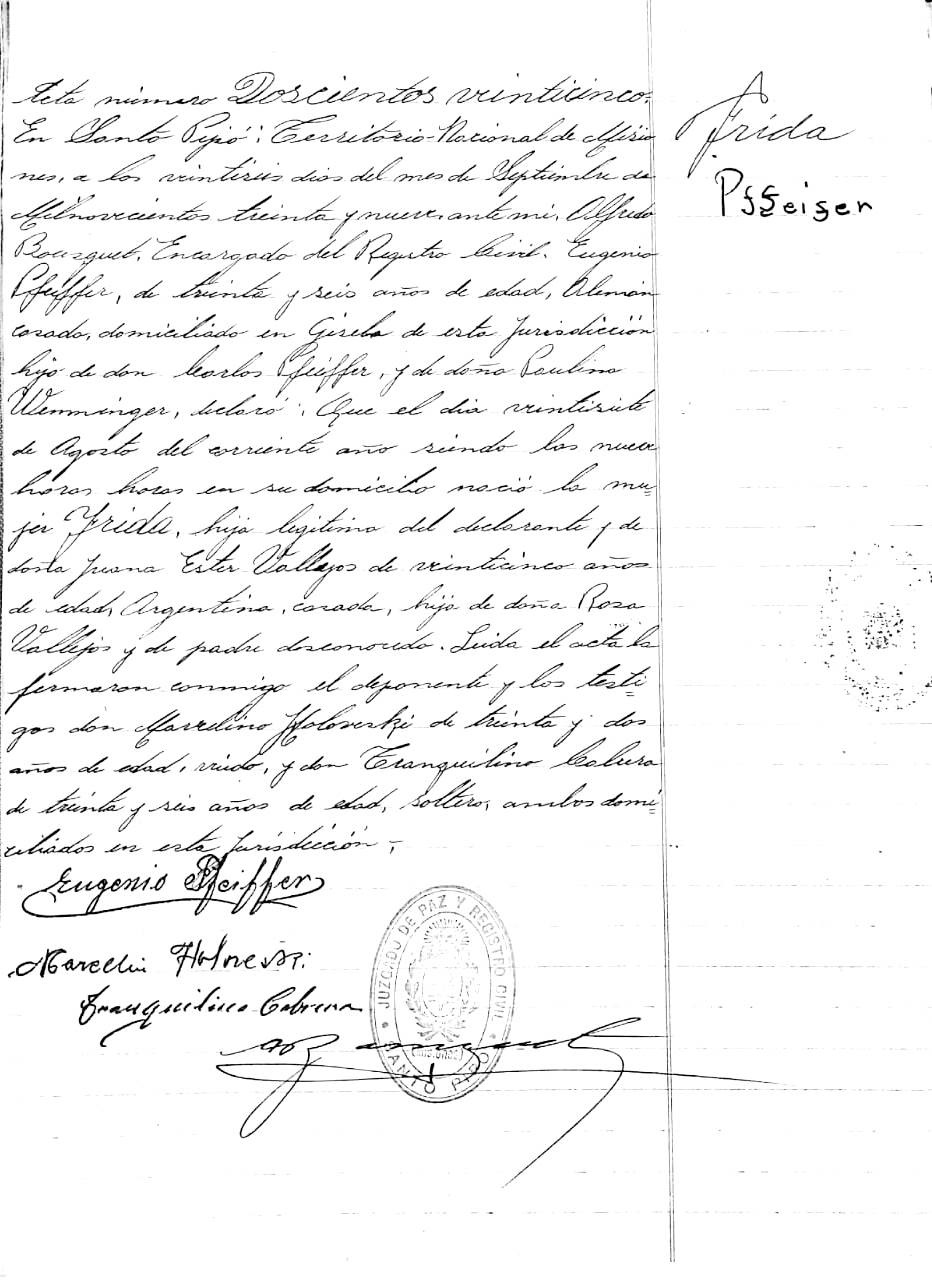 Acta número Doscientos veinticinco.
En Santo Pipó: Territorio Nacional de Misio
nes, a los veintiseis dias del mes de Septiembre de
Milnovecientos treinta y nueve, ante mi, Alfredo
Bousquet, Encargado del Registro Civil. Eugenio
Pfeiffer, de treinta y seis años de edad, Alemán
casado, domiciliado en Gisela de esta Jurisdicción
hijo de don Carlos Pfeiffer, y de doña Paulina
Wenminger, declaró: Que el dia veintisiete
de Agosto del corriente año siendo las nueve
horas horas en su domicilio nació la mu-
jer Frida, hija legitima del declarante y de
doña Juana Ester Vallejos de veinticinco años
de edad, Argentina, casada, hija de doña Rosa
Vallejos y de padre desconocido. Leida el acta la
firmaron conmigo el deponente y los testi-
gos don Marcelino Holoveski de treinta y dos
años de edad, viudo, y don Tranquilino Cabrera
de treinta y seis años de edad, soltero, ambos domi-
ciliados en esta jurisdicción,-
Eugenio Pfeiffer
Tranquilino Cabrera
JUZGADO DE PAZ Y REGISTRO CIVIL
SANTO PIPO
Frida
Pffeifer